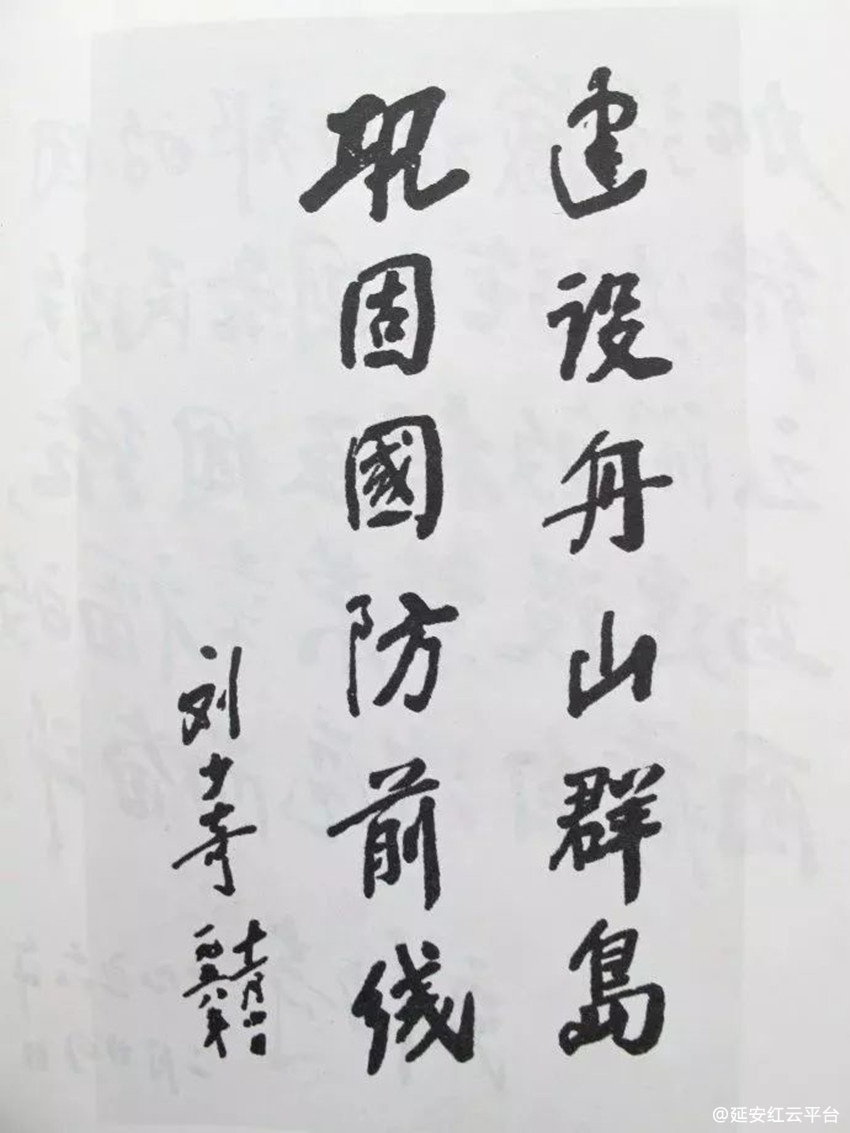 建设舟山群島
巩固國防前线
刘少奇
一九五八年
@延安红云平台